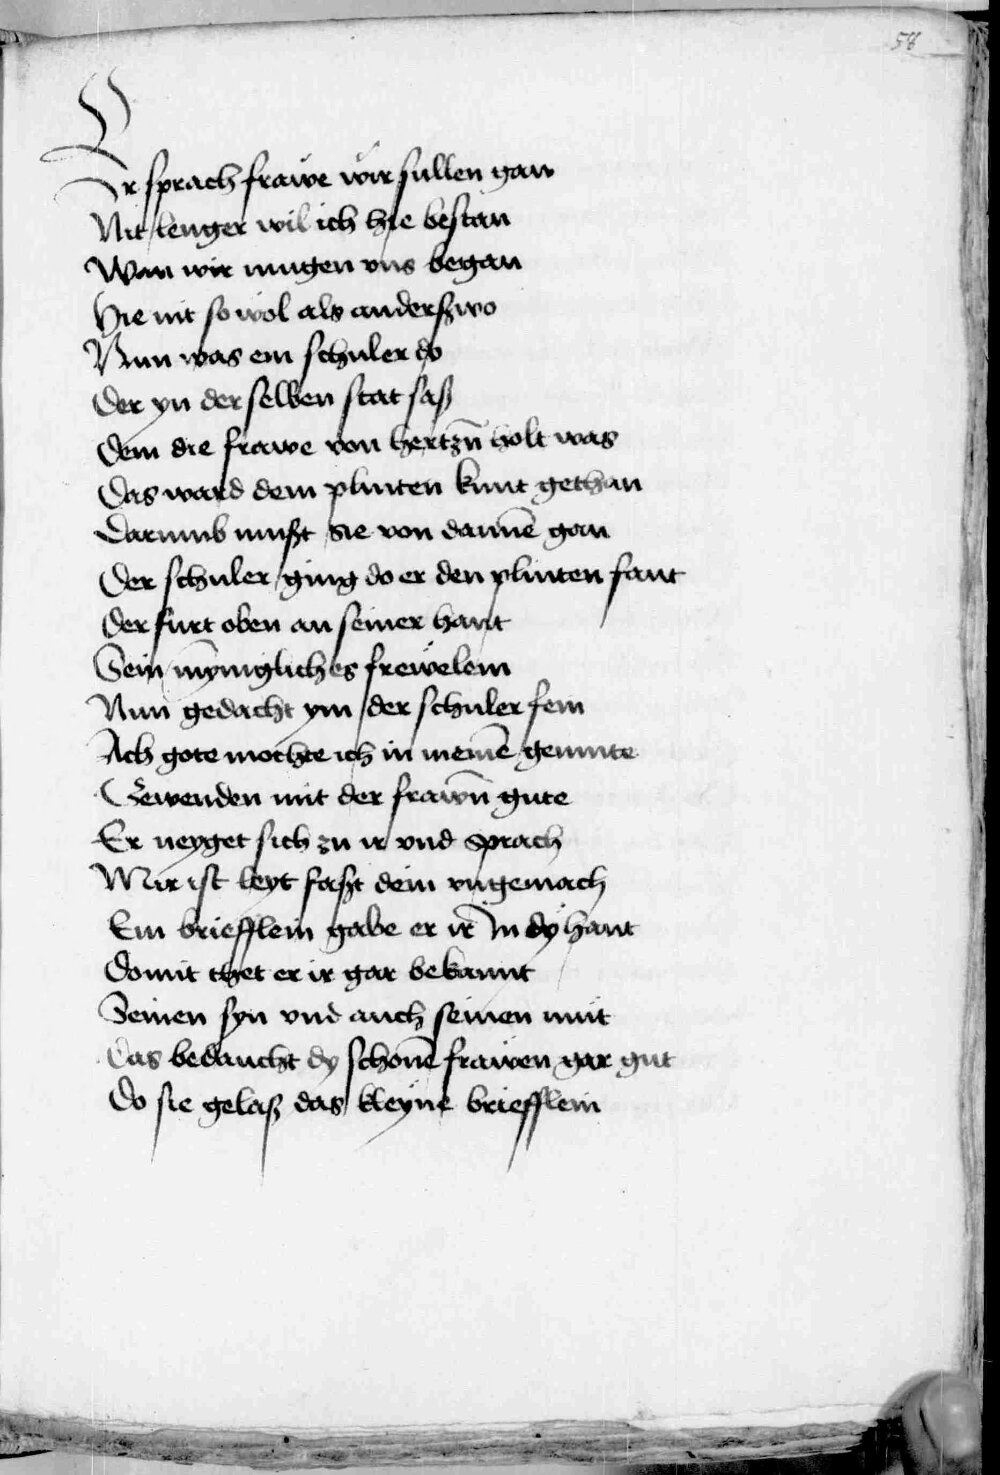 58
Er sprach frawe wir sullen gan
Nit lenger wil ich hie bestan
Wan wir mugen vns began
Hie nit so wol als anderßwo
Nun was ein schuler do
Der yn der selben stat saß
Dem die frawe von hertzn̄ holt was
Das ward dem plinten kunt gethan
Darumb mußt sie von dannē gan
Der schuler ging do er den plinten fant
Der furt oben an seiner hant
Sein mȳnigliches frewelein
Nun gedacht ym der schuler fein
Ach gote mochte ich in meinē gemute
Gewenden mit der frawn̄ gute
Er neyget sich zu ir vnd sprach
Mir ist leyt faßt dein vngemach
Ein briefflein gabe er ir In dy hant
Domit thet er ir gar bekannt
Seinen syn vnd auch seinen mut
Das bedaucht dy schonē frawen gar gut
Do sie gelaß das kleyne briefflein